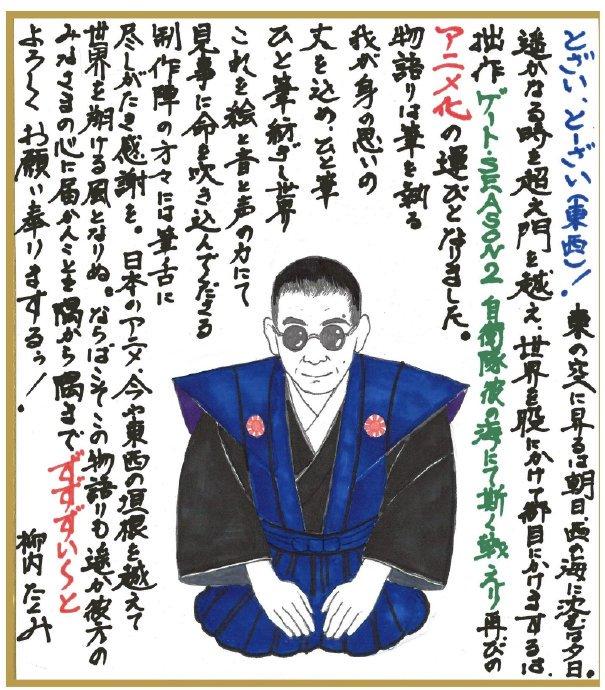 とざい、とーざい(東西)！ 東の空に昇るは朝日、西の海に沈むは夕日。
遥かなる時を超え門を越え、世界を股にかけて御目にかけまするは、
拙作 ゲート・SEASON2 自衛隊彼の海にて斯く戦えり 再びの
アニメ化の運びとなりました。
物語りは筆を執る
我が身の思いの
丈を込め、ひと筆
ひと筆、紡ぎし世界
これを絵と音と声の力にて
見事に命を吹き込んでくださる
制作陣の方々には筆舌に
尽しがたき感謝を。日本のアニメ、今や東西の垣根を越えて
世界を翔ける風となりぬ。ならばこそこの物語りも遥か彼方の
みなさまの心に届かんことを隅から隅まで ずずずい〜と
よろしく お願い奉りまするぅ！
柳内たくみ